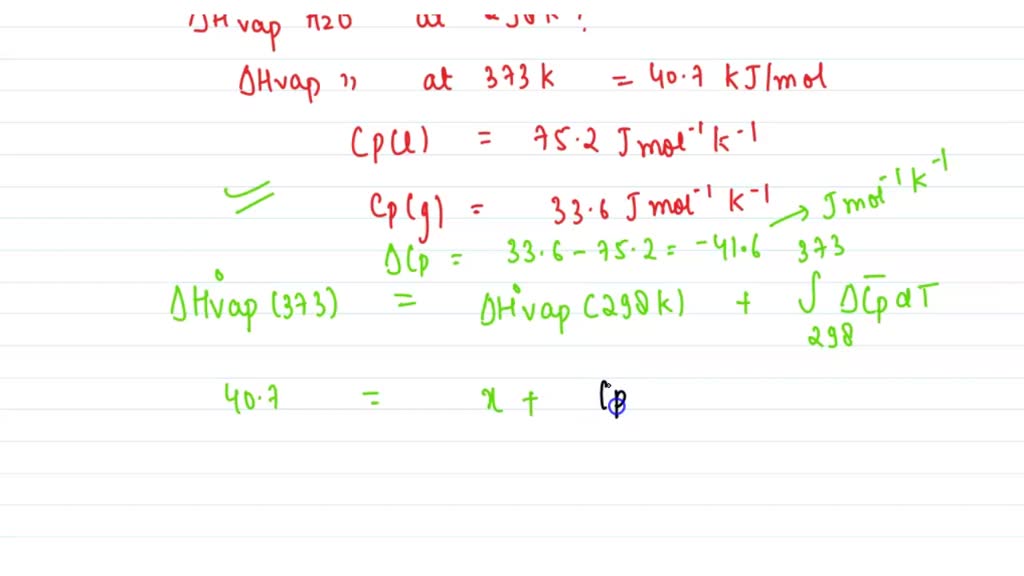 ΔHvap H2O at 298K?
ΔHvap ,, at 373K = 40.7 kJ/mol
Cp(l) = 75.2 J mol⁻¹ K⁻¹
Cp(g) = 33.6 J mol⁻¹ K⁻¹
ΔCp = 33.6 - 75.2 = -41.6 → J mol⁻¹ K⁻¹
ΔH°vap (373) = ΔH°vap (298K) + ∫₂₉₈³⁷³ ΔC̅p dT
40.7 = x + Cp